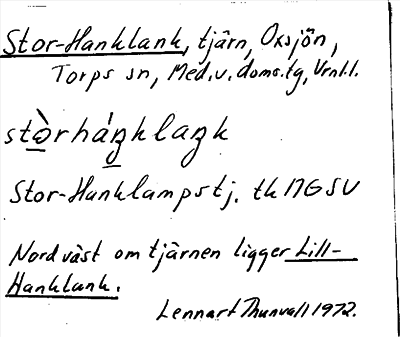 Stor-Hanklank, tjärn, Oxsjön,
Torps sn, Med.v. doms.tg, Vrnl.l.
stòrháŋklaŋk
Stor-Hanklampstj. tk 17G SV
Nordväst om tjärnen ligger Lill-
Hanklank.
Lennart Thunvall 1972.